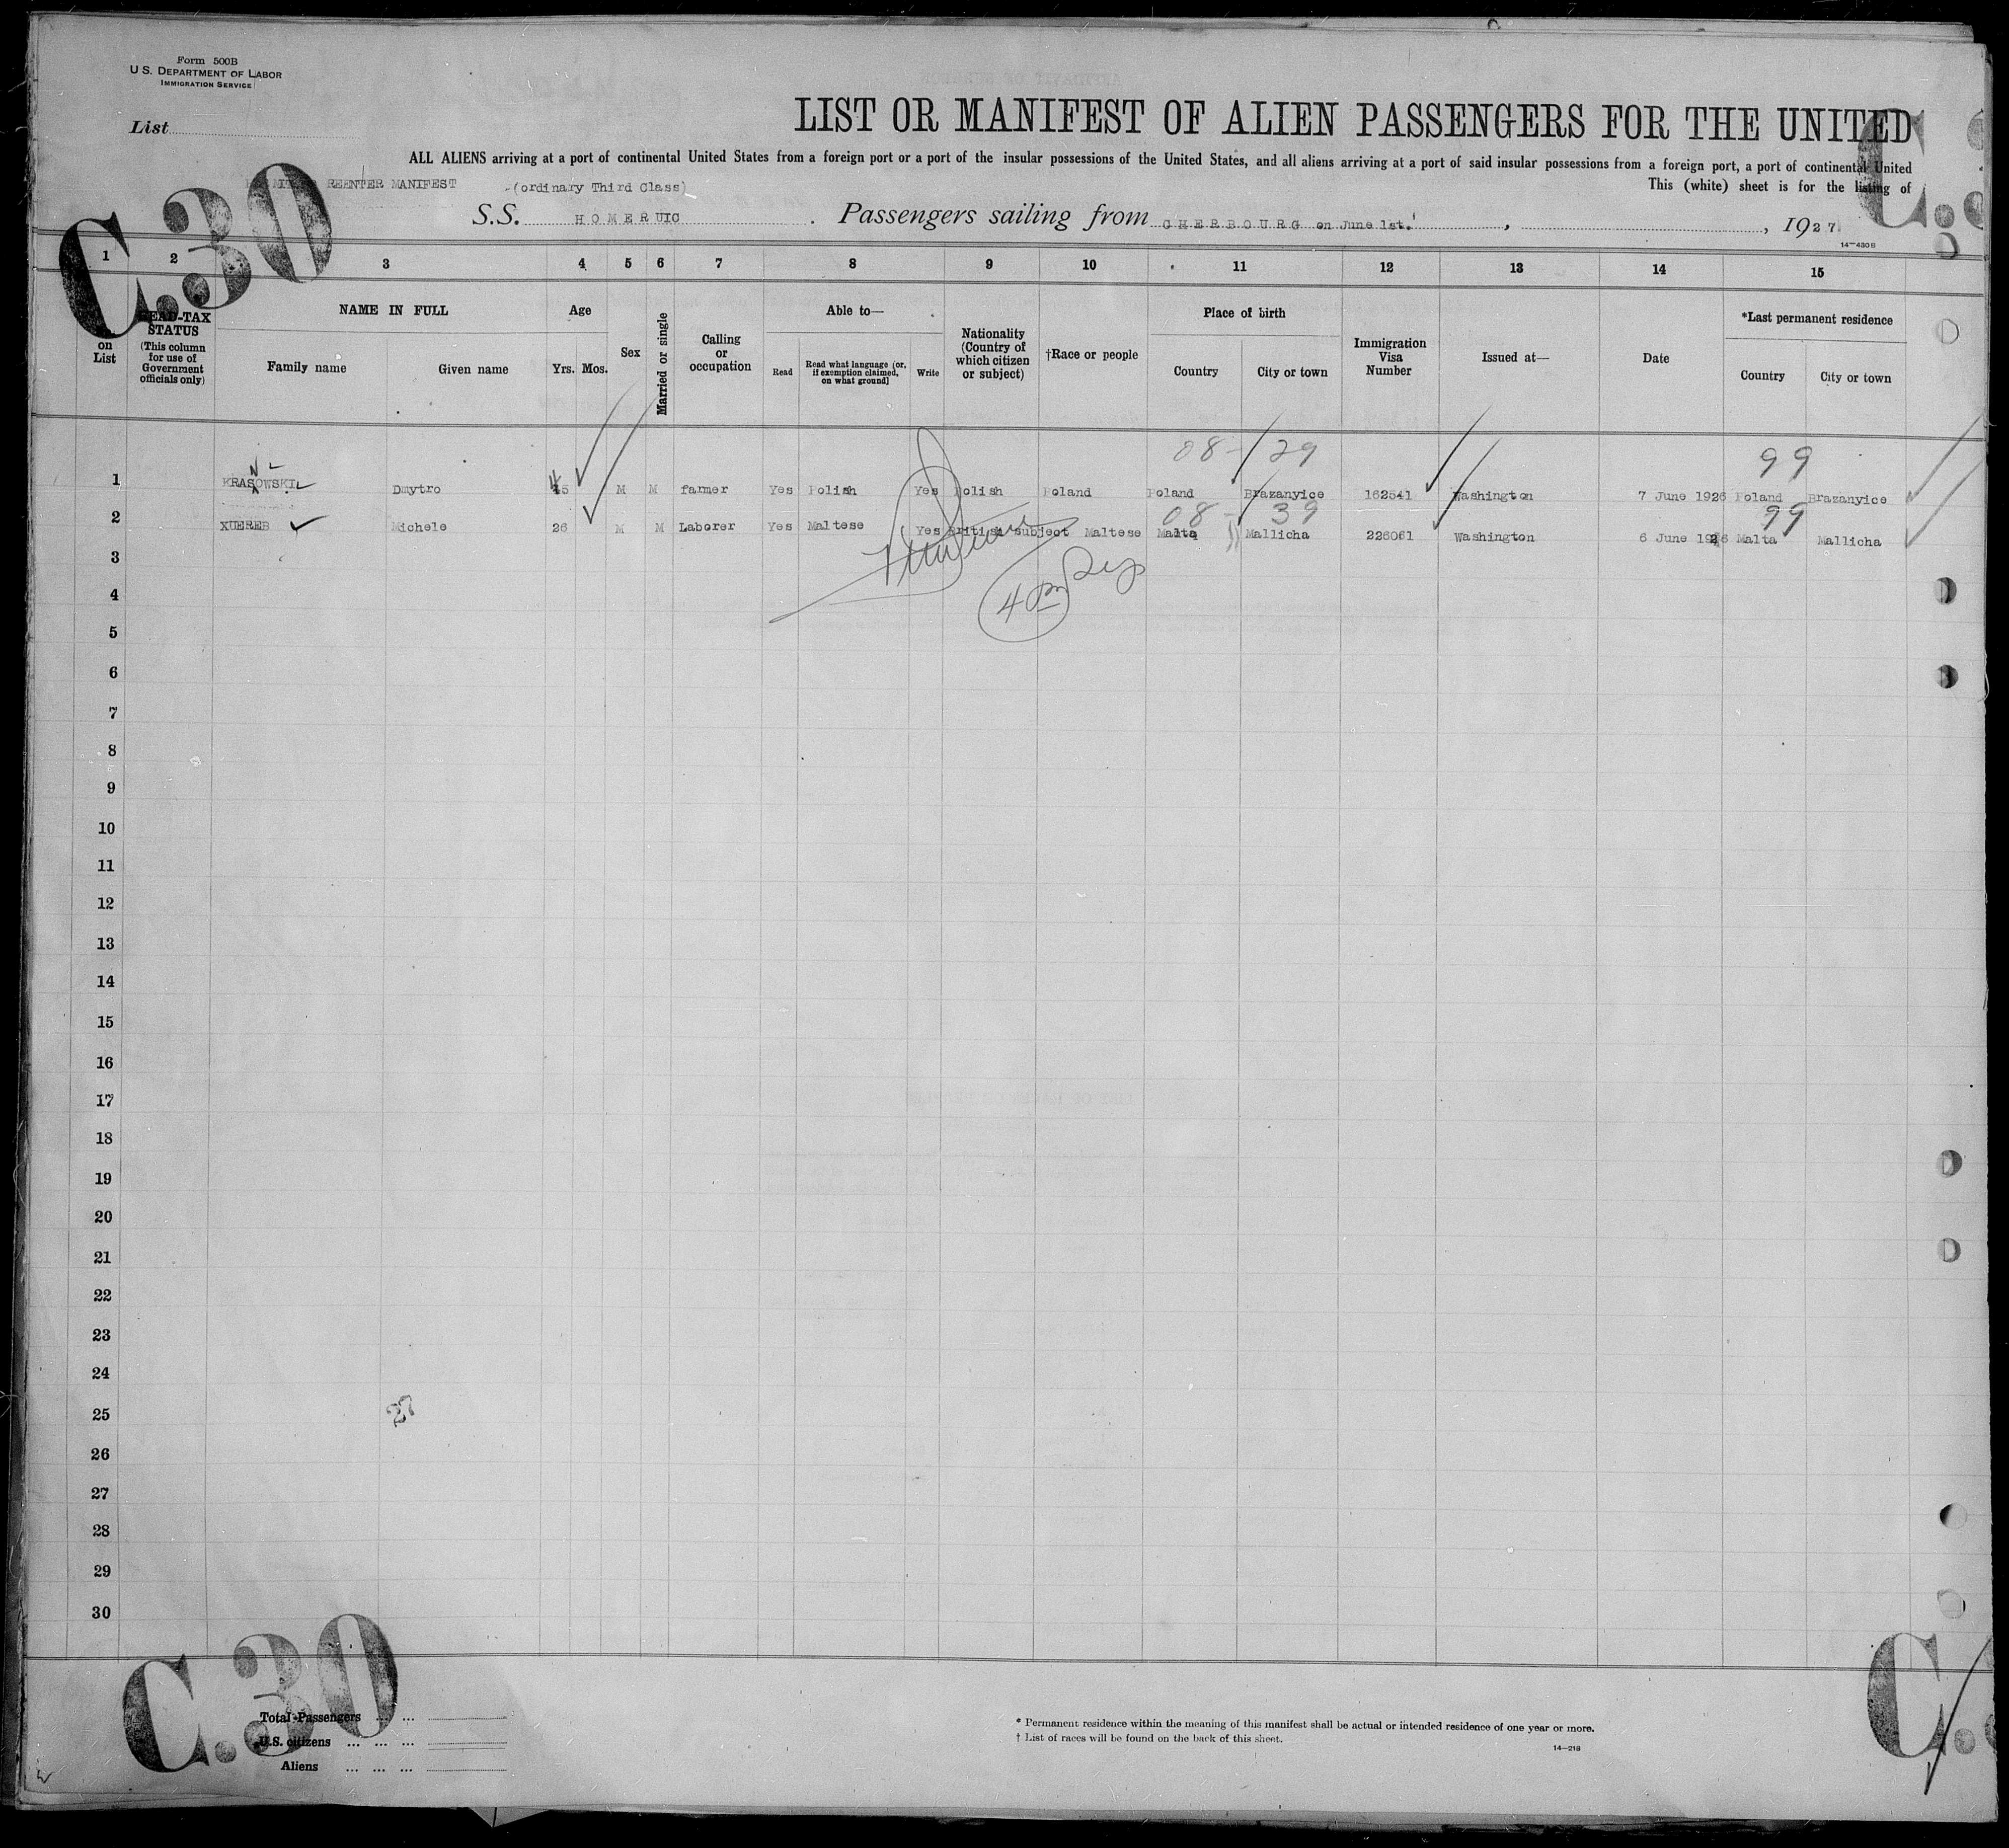 Form 500B
U.S. DEPARTMENT OF LABOR
IMMIGRATION SERVICE
List
LIST OR MANIFEST OF ALIEN PASSENGERS FOR THE UNITED
ALL ALIENS arriving at a port of continental United States from a foreign port or a port of the insular possessions of the United States, and all aliens arriving at a port of said insular possessions from a foreign port, a port of continental United
REENTER MANIFEST -(ordinary Third Class) This (white) sheet is for the listing of
C.30
S.S. HOMERUIC. Passengers sailing from CHERBOURG on June 1st. , , 1927
14-430B
1 2 3 4 5 6 7 8 9 10 11 12 13 14 15
on List
HEAD-TAX STATUS (This column for use of Government officials only)
NAME IN FULL
Family name Given name
Age
Yrs. Mos.
Sex
Married or single
Calling or occupation
Able to—
Read
Read what language (or, if exemption claimed, on what ground)
Write
Nationality (Country of which citizen or subject)
†Race or people
Place of birth
Country City or town
Immigration Visa Number
Issued at—
Date
*Last permanent residence
Country City or town
08-/29 99
1 KRASOWSKI Dmytro 45 M M farmer Yes Polish Yes Polish Poland Poland Brazanyice 162541 Washington 7 June 1926 Poland Brazanyice
08-39 99
2 XUEREB Michele 26 M M Laborer Yes Maltese Yes British subject Maltese Malta Mallicha 226061 Washington 6 June 1926 Malta Mallicha
3
4
5
6
7
8
9
10
11
12
13
14
15
16
17
18
19
20
21
22
23
24
25
27
26
27
28
29
30
C.30
Total Passengers ... ...
U.S. citizens ... ... ...
Aliens ... ... ...
* Permanent residence within the meaning of this manifest shall be actual or intended residence of one year or more.
† List of races will be found on the back of this sheet.
14-218